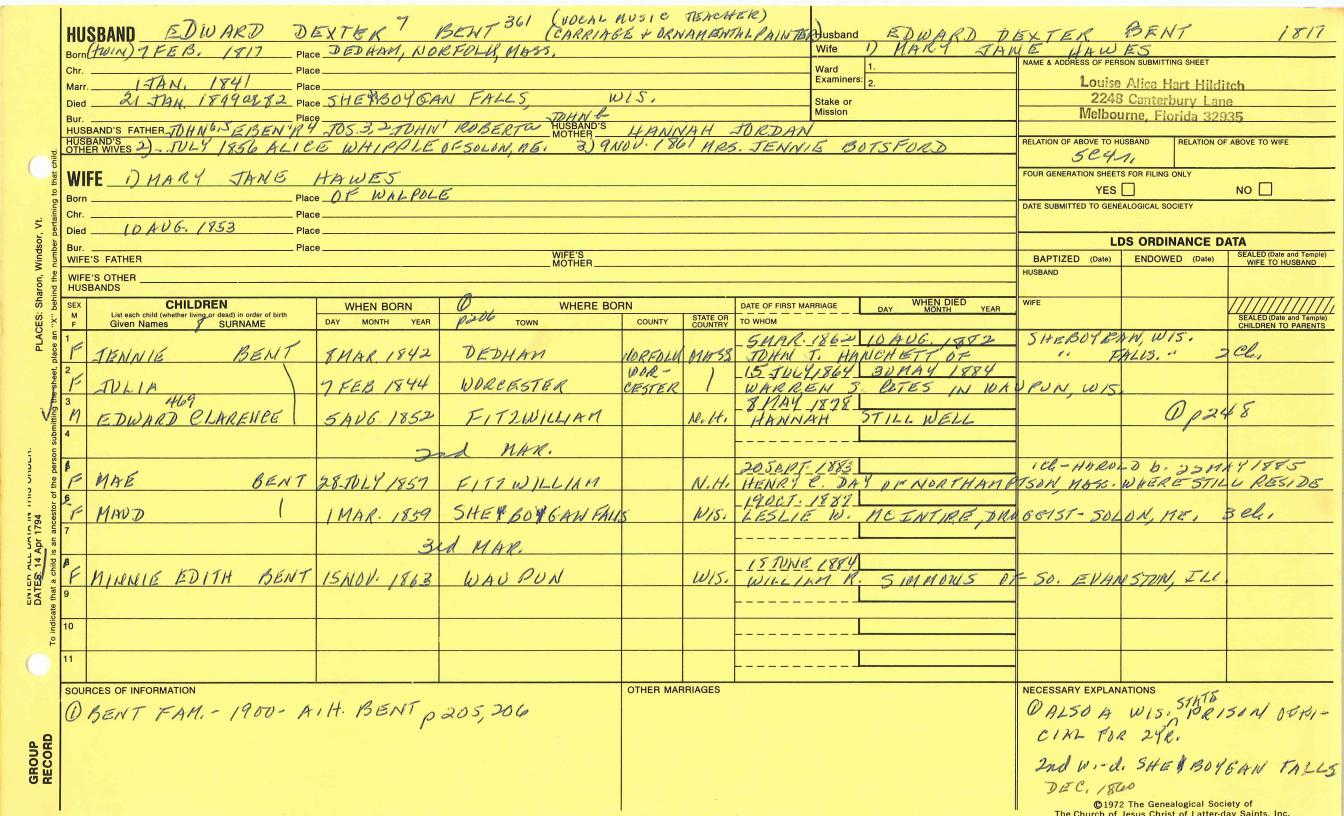 HUSBAND EDWARD DEXTER 7 BENT 361 (VOCAL MUSIC TEACHER)
(CARRIAGE & ORNAMENTAL PAINTER)
Born (twin) 7 FEB. 1817 Place DEDHAM, NORFOLK, MASS.
Chr. Place
Marr. 1 JAN. 1841 Place
Died 21 JAN. 1899 Place SHEYBOYGAN FALLS, WIS.
Bur. Place
HUSBAND'S FATHER JOHN 6,5 EBEN'R4 JOS. 3,2 JOHN1 ROBERT JOHN HUSBAND'S MOTHER HANNAH JORDAN
HUSBAND'S OTHER WIVES 2) JULY 1856 ALICE WHIPPLE OF SOLON, ME. 3) 9 NOV. 1861 MRS. JENNIE BOTSFORD
WIFE 1) MARY JANE HAWES
Born Place OF WALPOLE
Chr. Place
Died 10 AUG. 1853 Place
Bur. Place
WIFE'S FATHER WIFE'S MOTHER
WIFE'S OTHER HUSBANDS
Husband EDWARD DEXTER BENT 1817
Wife 1) MARY JANE HAWES
Ward Examiners: 1.
2.
Stake or Mission
NAME & ADDRESS OF PERSON SUBMITTING SHEET
Louise Alice Hart Hilditch
2248 Canterbury Lane
Melbourne, Florida 32935
RELATION OF ABOVE TO HUSBAND RELATION OF ABOVE TO WIFE
5C4r.
FOUR GENERATION SHEETS FOR FILING ONLY
YES NO
DATE SUBMITTED TO GENEALOGICAL SOCIETY
LDS ORDINANCE DATA
BAPTIZED (Date) ENDOWED (Date) SEALED (Date and Temple) WIFE TO HUSBAND
HUSBAND
WIFE
SEALED (Date and Temple) CHILDREN TO PARENTS
SEX M F
CHILDREN
List each child (whether living or dead) in order of birth
Given Names 8 SURNAME
WHEN BORN
DAY MONTH YEAR
① p206
WHERE BORN
TOWN COUNTY STATE OR COUNTRY
DATE OF FIRST MARRIAGE
TO WHOM
WHEN DIED
DAY MONTH YEAR
1 5 MAR. 1862 10 AUG. 1882 SHEBOYGAN, WIS.
F JENNIE BENT 8 MAR 1842 DEDHAM NORFOLK MASS JOHN T. HANCHETT OF " FALLS. " 2 Ch.
2 15 JULY 1864 30 MAY 1884
F JULIA 7 FEB 1844 WORCESTER WORCESTER WARREN S. IN WAUPUN, WIS.
3 469 8 MAY 1878
M EDWARD CLARENCE 5 AUG. 1852 FITZWILLIAM N.H. HANNAH STILLWELL ① p248
4
2nd MAR.
5 20 SEPT. 1883 1ch - HAROLD b. 22 MAY 1885
F MAE BENT 28 JULY 1857 FITZWILLIAM N.H. HENRY C. DAY OF NORTHAMPTSON, MASS. WHERE STILL RESIDE
6 19 OCT. 1887
F MAUD 1 MAR. 1859 SHEYBOYGAN FALLS WIS. LESLIE W. MCINTIRE, DRUGGIST - SOLON, ME. 3 ch.
7
3rd MAR.
8 18 JUNE 1884
F MINNIE EDITH BENT 15 NOV. 1863 WAUPUN WIS. WILLIAM R. SIMMONS OF SO. EVANSTON, ILL.
9
10
11
SOURCES OF INFORMATION
① BENT FAM. - 1900 - A.H. BENT p205, 206
OTHER MARRIAGES
NECESSARY EXPLANATIONS
① ALSO A WIS. STATE PRISON OFFI-
CIAL FOR 2 YR.
2nd w. - d. SHEYBOYGAN FALLS
DEC. 1860
©1972 The Genealogical Society of
The Church of Jesus Christ of Latter-day Saints, Inc.
PLACES: Sharon, Windsor, Vt.
ENTER ALL DATA IN THIS ORDER:
DATES: 14 Apr 1794
To indicate that a child is an ancestor of the person submitting the sheet, place an "X" behind the number pertaining to that child.
GROUP RECORD